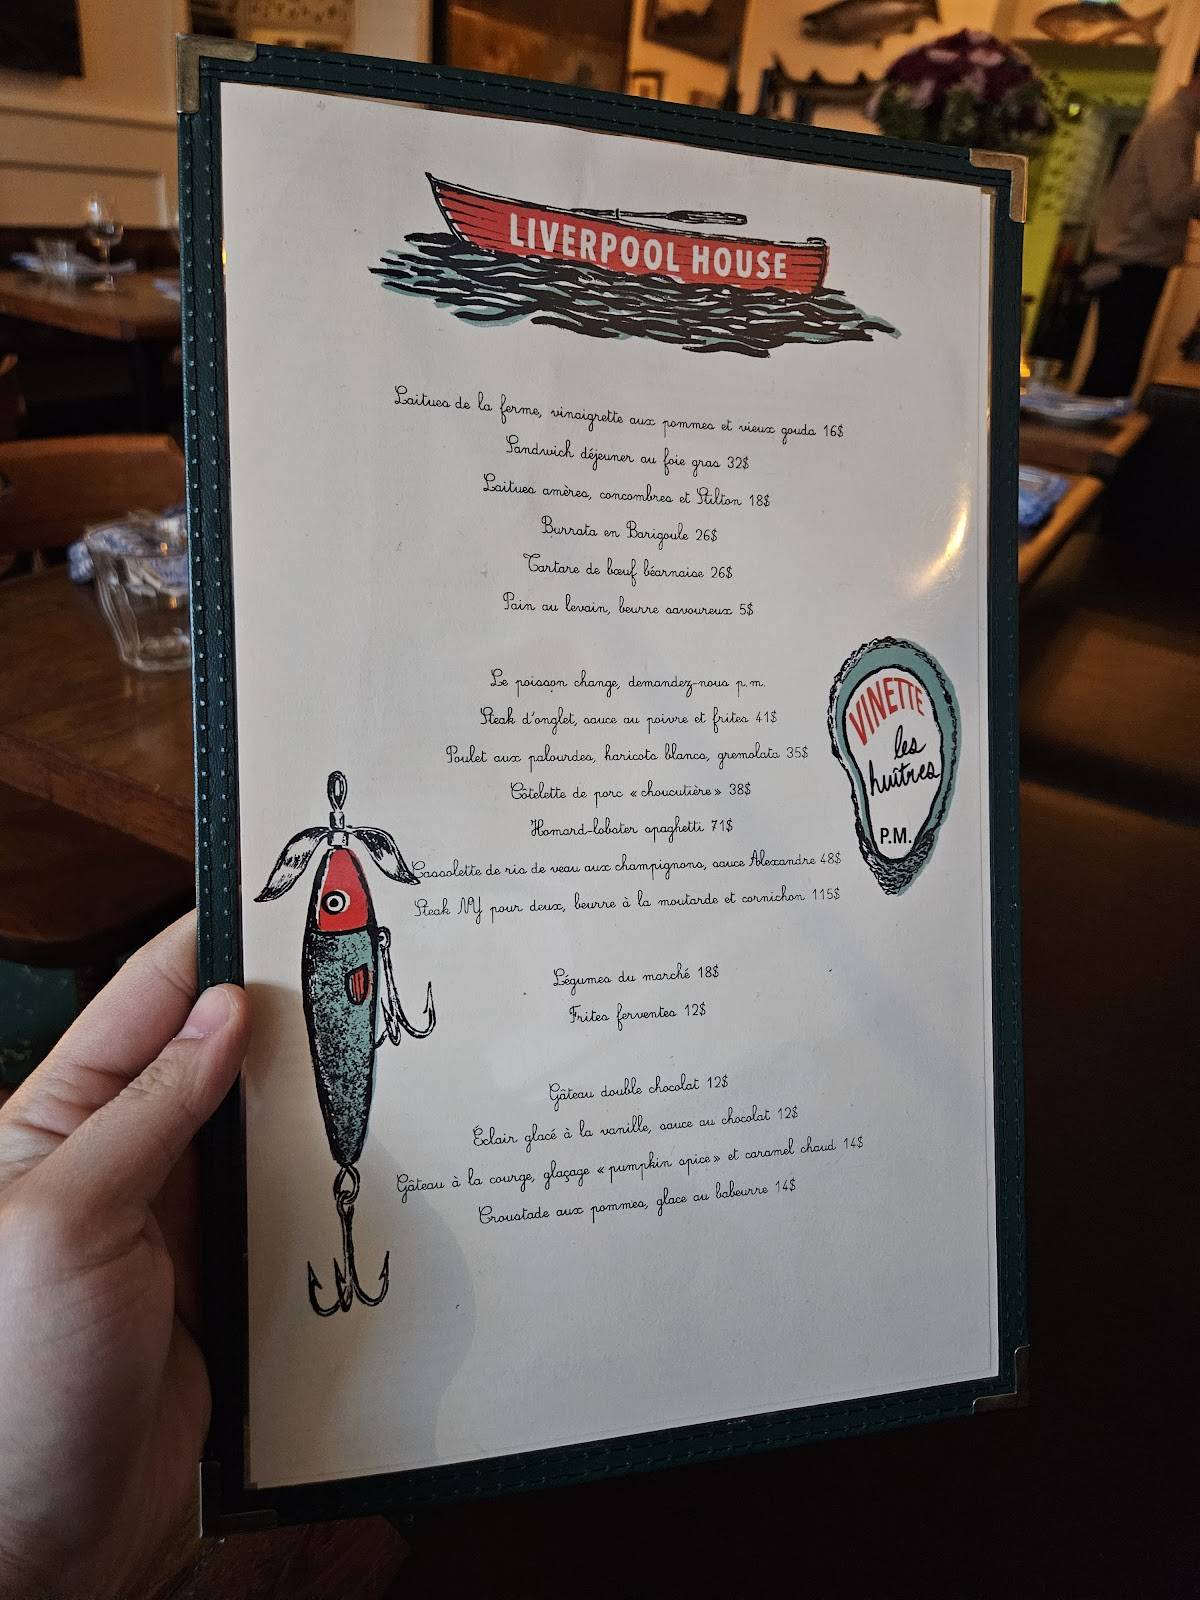 LIVERPOOL HOUSE
Laitues de la ferme, vinaigrette aux pommes et vieux gouda 16$
Sandwich déjeuner au foie gras 32$
Laitues amères, concombres et Stilton 18$
Burrata en Barigoule 26$
Tartare de bœuf béarnaise 26$
Pain au levain, beurre savoureux 5$
Le poisson change, demandez-nous p.m.
Steak d'onglet, sauce au poivre et frites 41$
Poulet aux palourdes, haricots blancs, gremolata 35$
Côtelette de porc « choucutière » 38$
Homard-lobster spaghetti 71$
Cassolette de ris de veau aux champignons, sauce Alexandre 48$
Steak NY pour deux, beurre à la moutarde et cornichon 115$
VINETTE
les
huîtres
P.M.
Légumes du marché 18$
Frites ferventes 12$
Gâteau double chocolat 12$
Éclair glacé à la vanille, sauce au chocolat 12$
Gâteau à la courge, glaçage « pumpkin spice » et caramel chaud 14$
Croustade aux pommes, glace au babeurre 14$